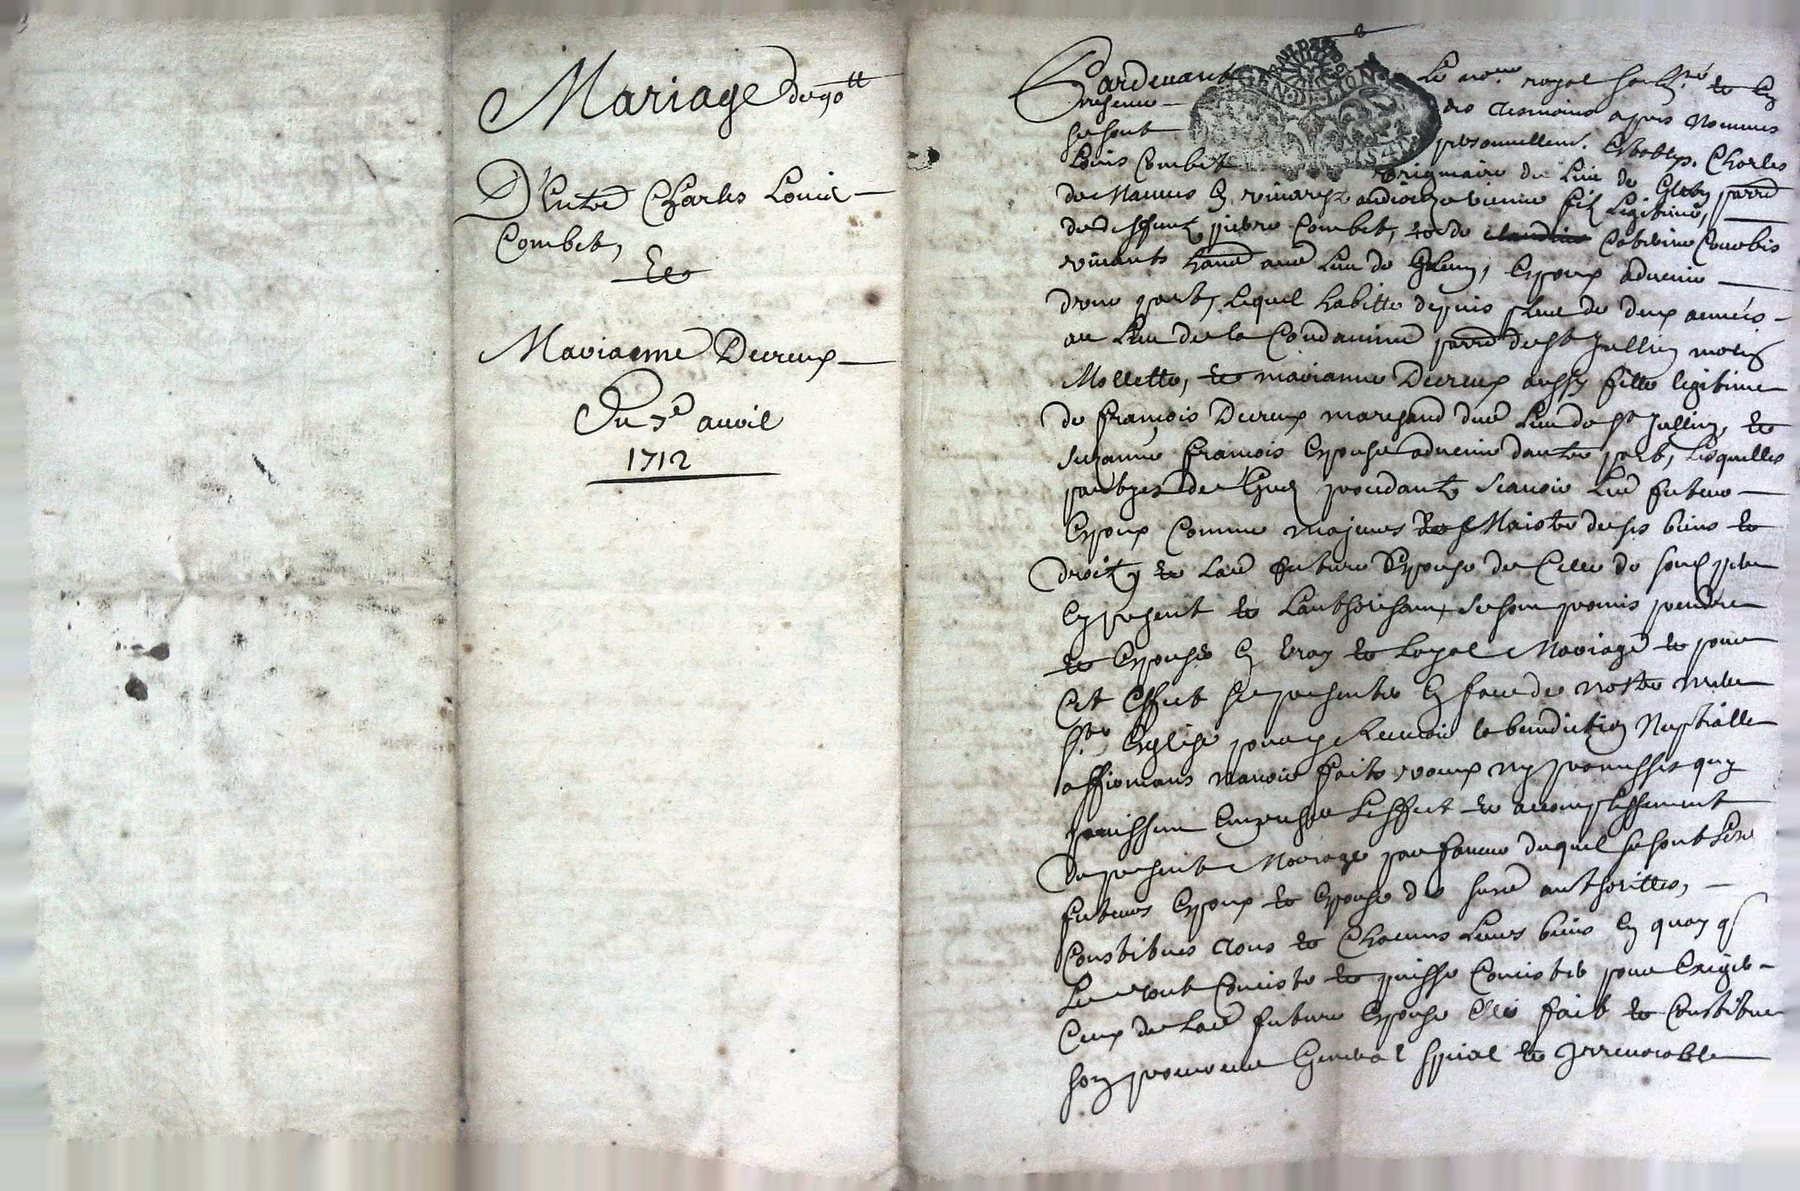 Mariage de 90ᵗᵗ
D'Entre Charles Louis
Combet,
Et
Marianne Decreux
Du 7e auril
1712
GEN. DE LION
Pardeuant Le no.re royal soub.né et En
presence des tesmoins apres nommes
se sont personnellem. Establys. Charles
Louis Combet originaire du Lieu de parre
de en viuarez fils legitime,
de deffunt pierre Combet, et de Caterine
viuants Lieu de Epoux aduenir
d'vne part, Lequel habitte depuis plus de deux années
au Lieu de la Condamine parre de St Jullien molin
Mollette, et marianne Decreux aussy fille legitime
de françois Decreux marchand dud Lieu de St Jullien, et
suzanne francois Espouse aduenir dautre part, Lesquelles
partyes de Gred procedants scauoir Led futeur
Epoux Comme majeur et Maistre de ses biens et
droits, et Lad future Espouse de Celle de sond pere
Cy present et Lauthorisant, se sont promis prendre
et Espouser En vray et Loyal Mariage et pour
Cet Effect se presenter En face de nostre mere
Ste Eglise pour y Receuoir la benediction Nuptialle
affirmans nauoir faits voeux ny promesses quy
puissent Empescher L'effect et accomplissement
du present Mariage par faueur duquel se sont Lesd
futeurs Epoux et Espouse de sused authorittes,
Constitues tous et Chacuns Leurs biens En quoy q
Le tout Consiste et puisse Consister pour Exiger
Ceux de Lad future Espouse Elle fait et Constitue
son procureur General spéial et Irreuocable